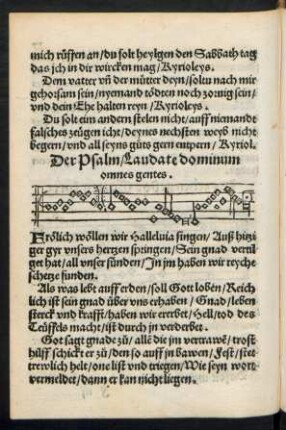 mich rüffen an/du solt heylgen den Sabbath tag
das ich in dir wircken mag/Kyrioleys.
Dem vatter vñ der mütter deyn/soltu nach mir
gehorsam sein/nyemand tödten noch zornig sein/
vnd dein Ehe halten reyn/Kyrioleys.
Du solt eim andern stelen nicht/auff niemandt
falsches zeügen icht/deynes nechsten weyb nicht
begern/vnd all seyns güts gern entpern/Kyriol.
Der Psalm/Laudate dominum
omnes gentes.
Frölich wöllen wir Halleluia singen/Auß hitzi
ger gyr vnsers hertzen springen/Sein gnad vertil
get hat/all vnser sünden/Jn jm haben wir reyche
schetze funden.
Als was lebt auff erden/soll Gott loben/Reich
lich ist sein gnad über vns erhaben/Gnad/leben
sterck vnd krafft/haben wir ererbet/Hell/tod des
Teüffels macht/ist durch jn verderbet.
Got sagt gnade zů/alle die jm vertrawē/trost
hülff schickt er zů/den so auff jn bawen/Fest/stet
trewlich helt/one list vnd triegen/Wie seyn wort
vermeldet/dann er kan nicht liegen.